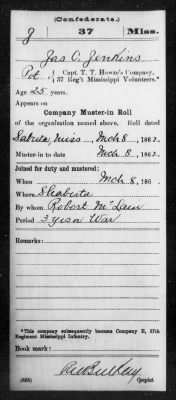 (Confederate.)
J 37 Miss.
Jas C. Jenkins
Pvt., Capt. T. T. Howze's Company,
37 Reg't Mississippi Volunteers.*
Age 25 years.
Appears on
Company Muster-in Roll
of the organization named above. Roll dated
Miss, Mch 8, 1862.
Muster-in to date Mch 8, 1862.
Joined for duty and mustered:
When Mch 8, 186 .
Where Shubuta
By whom Robert McLain
Period 3 yrs or War
Remarks:
*This company subsequently became Company E, 37th
Regiment Mississippi Infantry.
Book mark:
(655) Copyist.